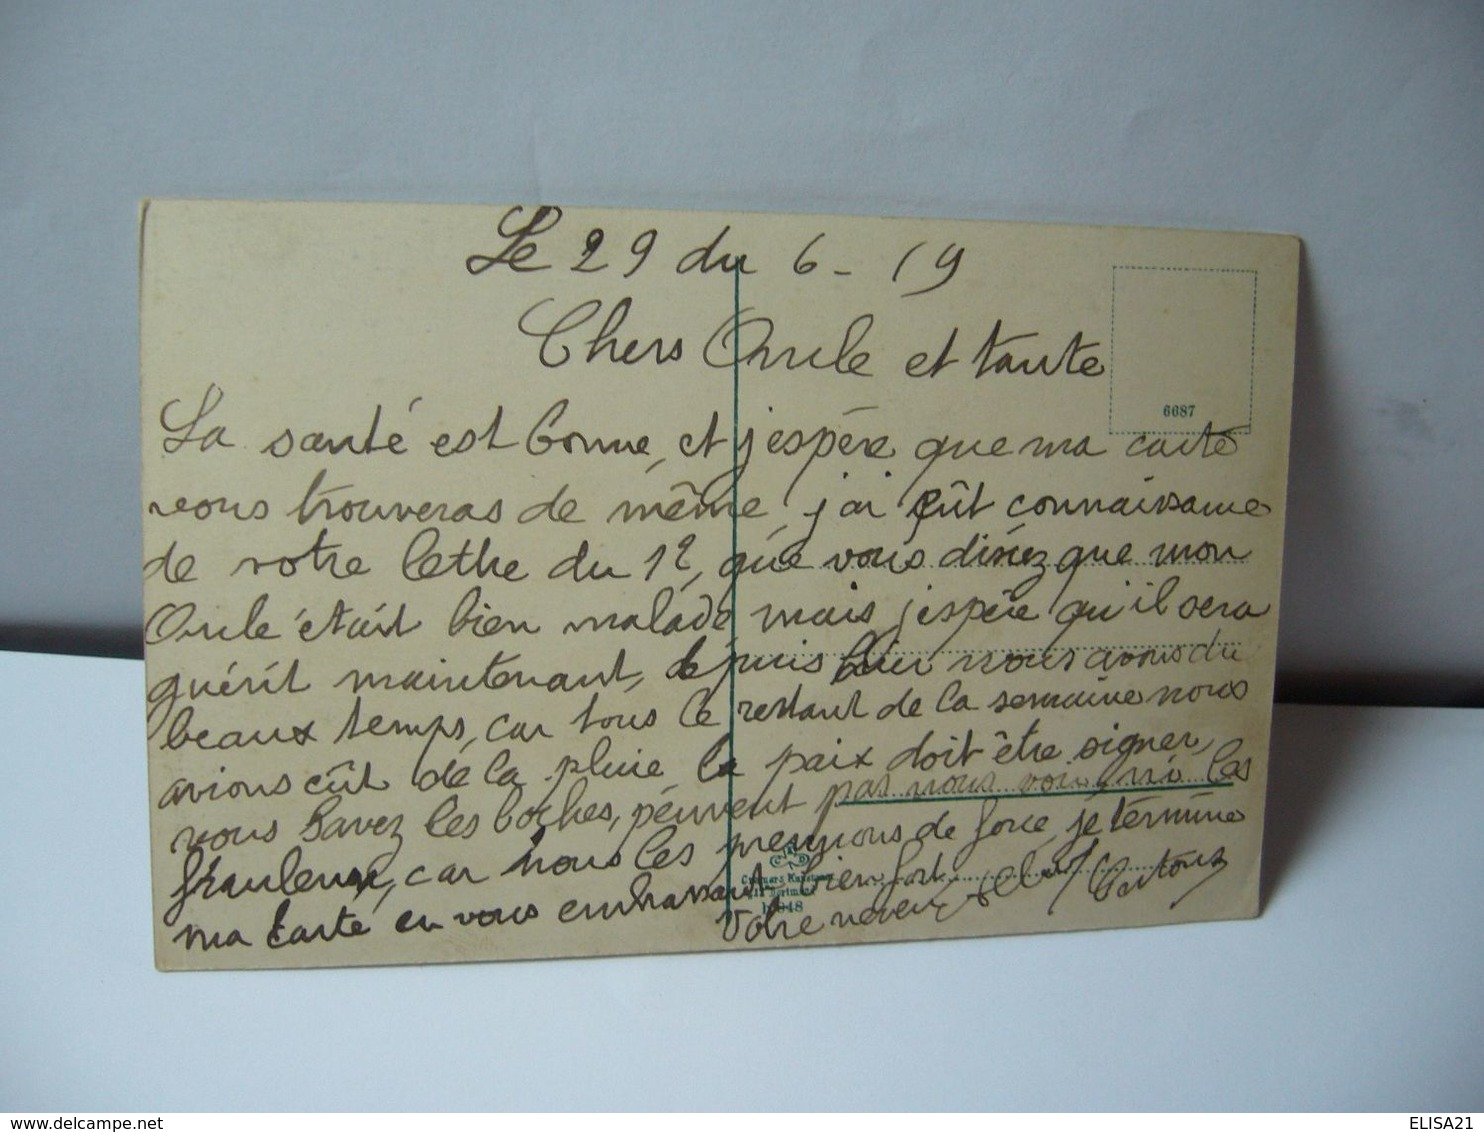 Le 29 du 6 - 19
Chers Oncle et tante
6687
La santé est bonne, et j'espère que ma carte
vous trouveras de même, j'ai eût connaissance
de votre lethre du 12, que vous disiez que mon
Oncle était bien malade mais j'espère qu'il sera
guérit maintenant, depuis hier nous avons du
beaux temps, car tous le restant de la semaine nous
avions eût de la pluie, la paix doit être signer,
vous savez les boches, peuvent pas nous voir, ni les
fraulens, car nous les prennons de force, je termine
ma carte en vous embrassant bien fort.
Votre neveu Albert
ELISA21
delcampe.net